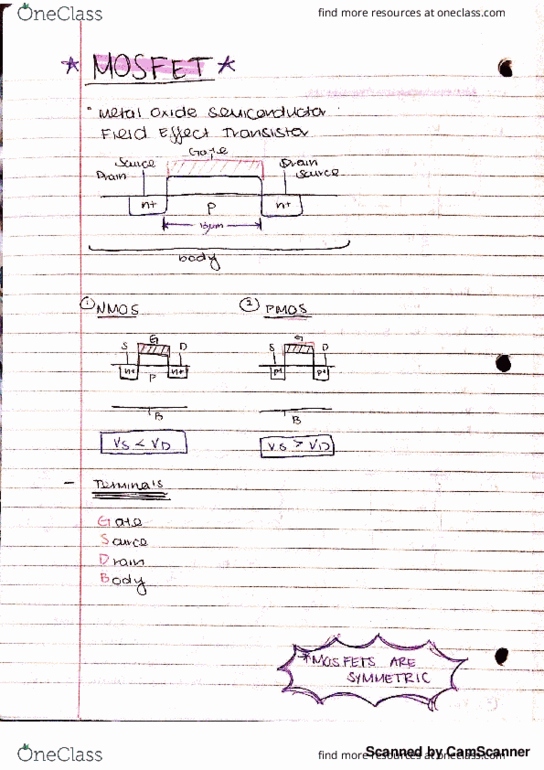 OneClass
find more resources at oneclass.com
* MOSFET *
" Metal Oxide Semiconductor
Field Effect Transistor
Gate
Source
Drain
Drain
Source
n+
P
n+
body
① NMOS
② PMOS
G
S
D
n+
P
n+
G
S
D
p+
p+
B
B
VS < VD
VS > VD
- Terminals
Gate
Source
Drain
Body
*MOSFETS ARE
SYMMETRIC
OneClass
find more resources at oneclass.com
Scanned by CamScanner